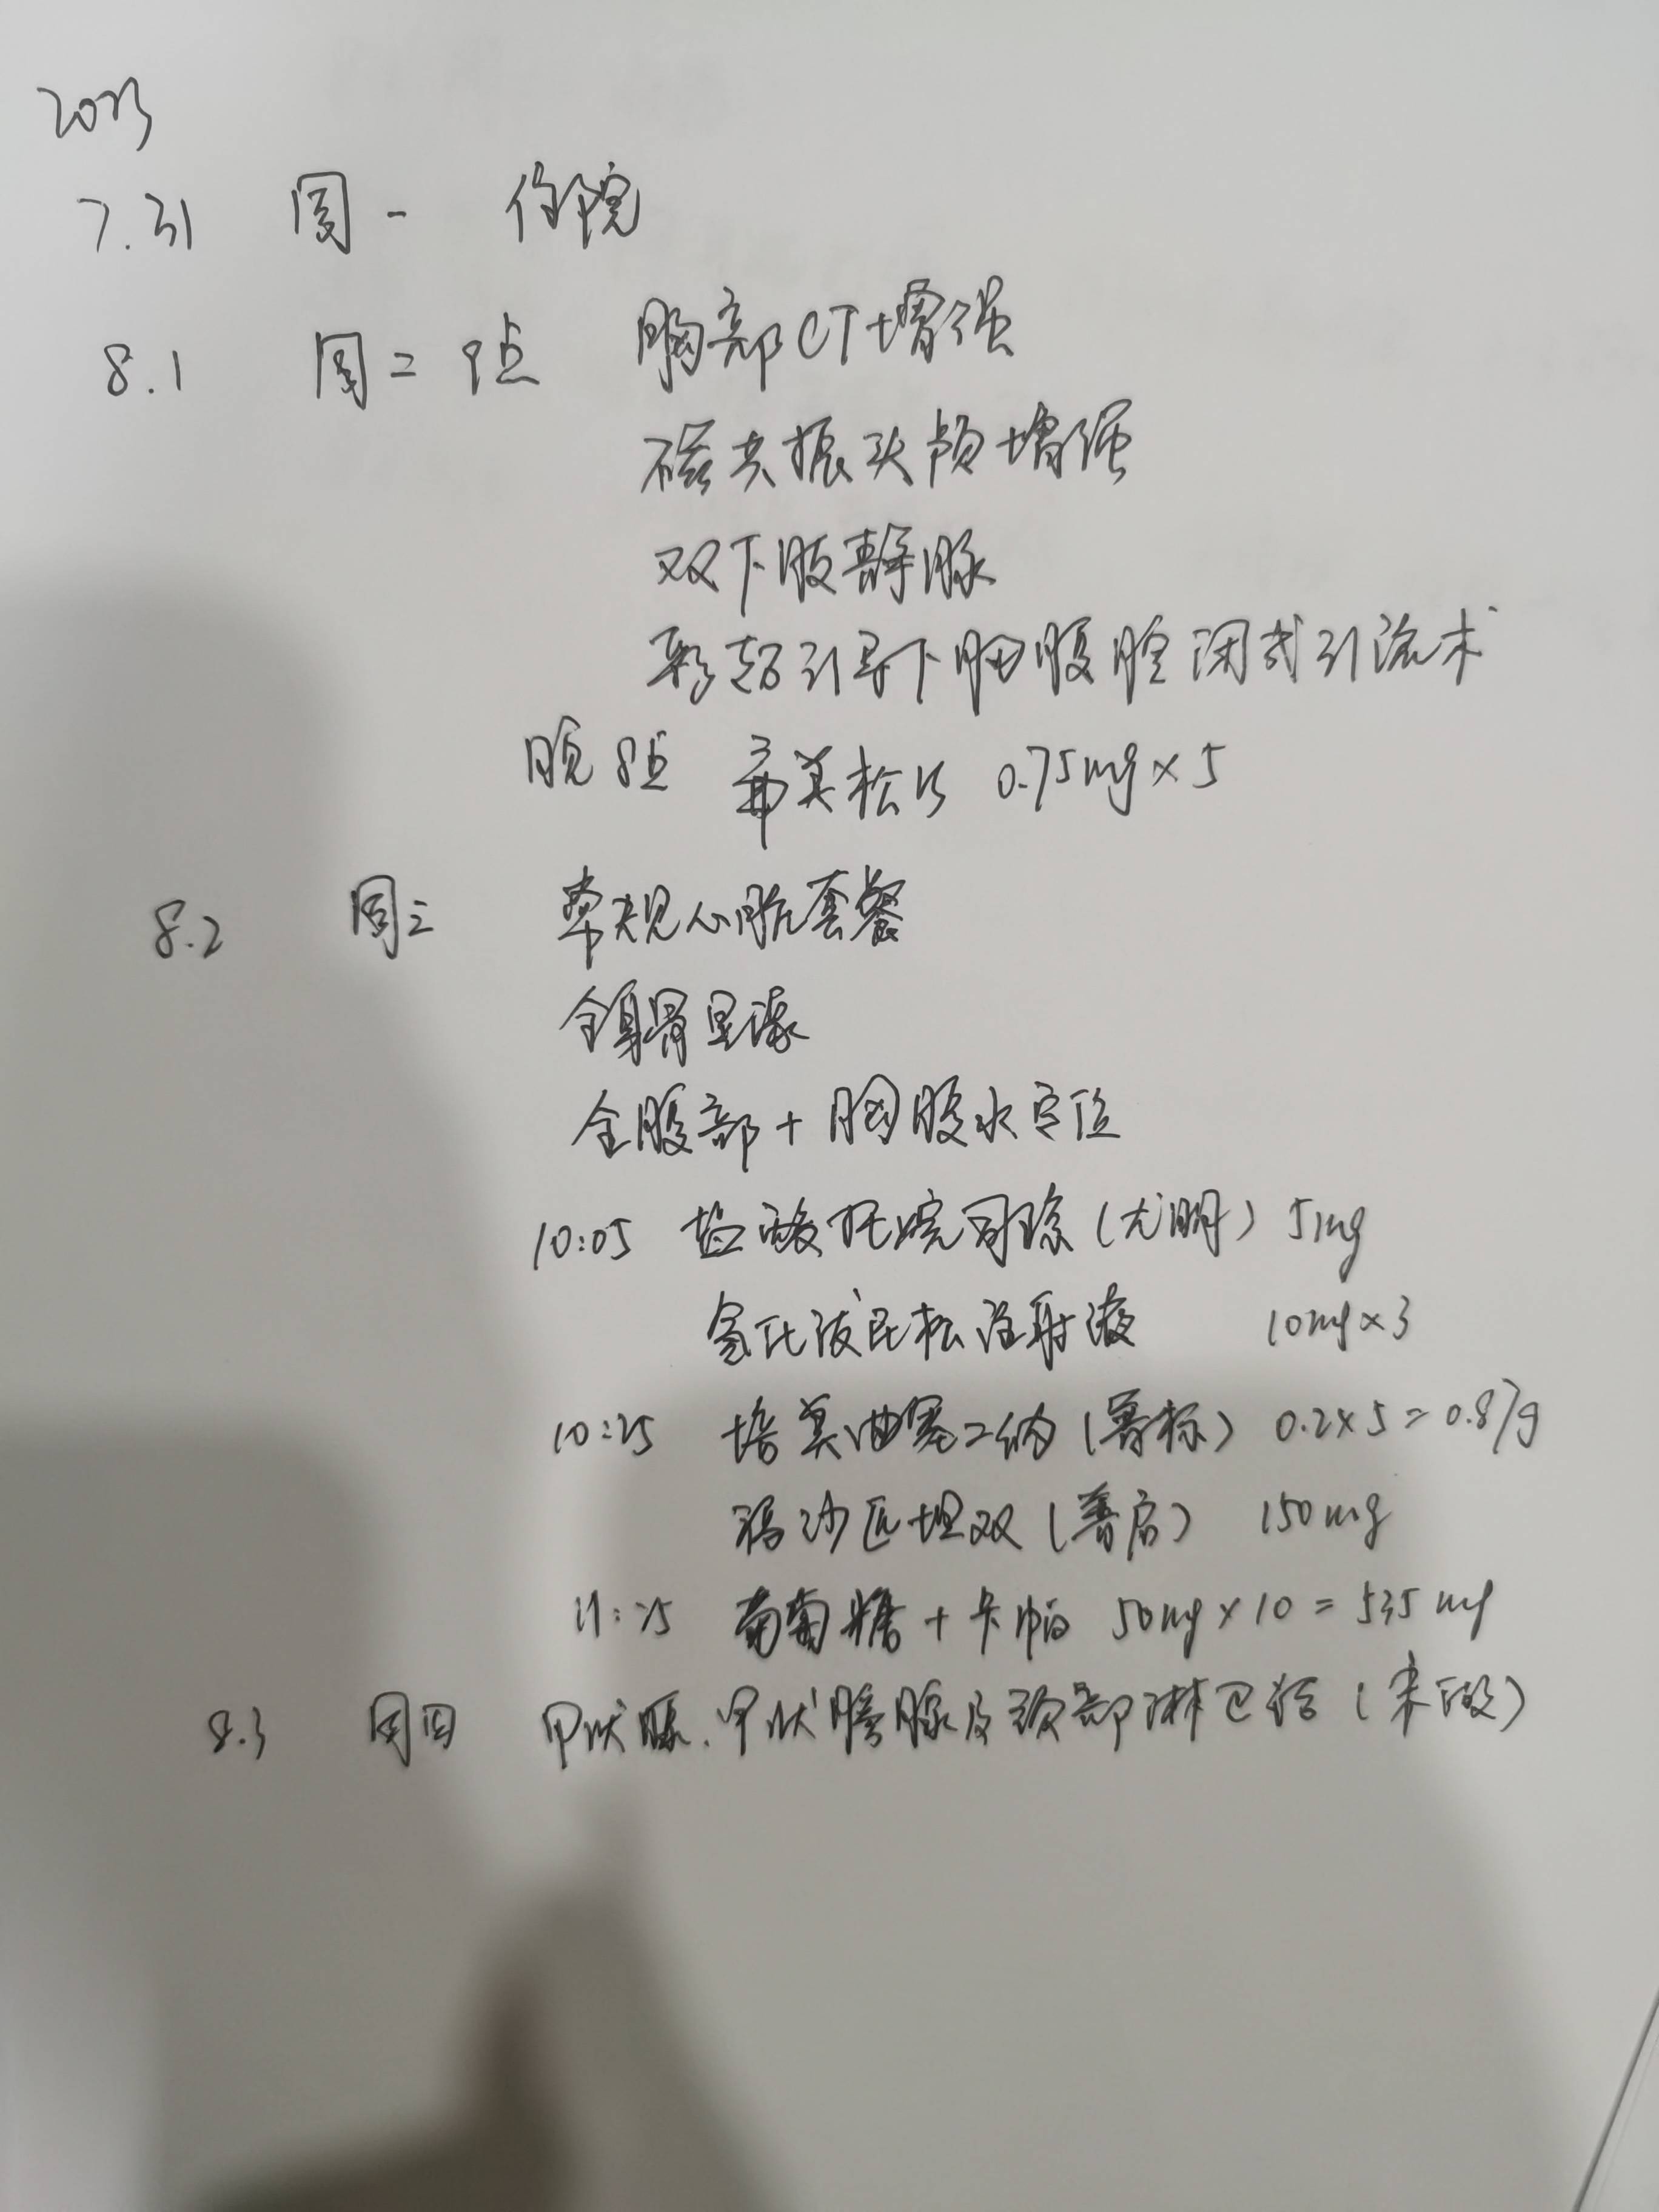 2023
7.31 周一 住院
8.1 周二 9点 胸部CT增强
磁共振头颅增强
双下肢静脉
彩超引导下胸腹腔闭式引流术
晚8点 帝美松片 0.75mg×5
8.2 周三 常规心脏套餐
全身骨显像
全腹部+胸腹水定位
10:05 盐酸托烷司琼(尤明) 5mg
氢化泼尼松注射液 10mg×3
10:25 培美曲塞二钠(普标) 0.2×5=0.87g
福沙匹坦双(善启) 150mg
11:25 葡萄糖+卡铂 50mg×10=535mg
8.3 周四 甲状腺、甲状旁腺及颈部淋巴结(未做)